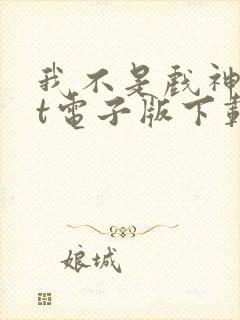 我不是戲神
t電子版下載
娘城